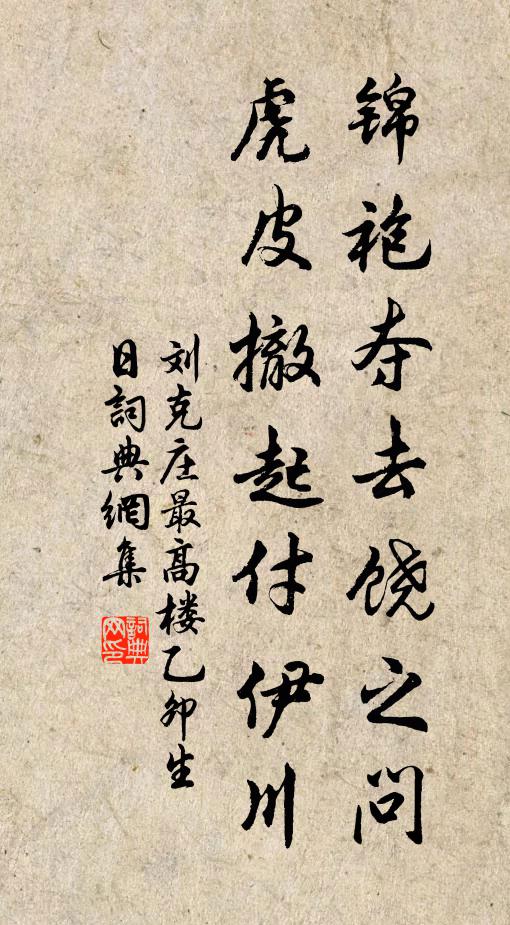 锦袍夺去饶之问
虎皮撤起付伊川
刘克庄最高楼乙卯生
日词典網集
詞典网印